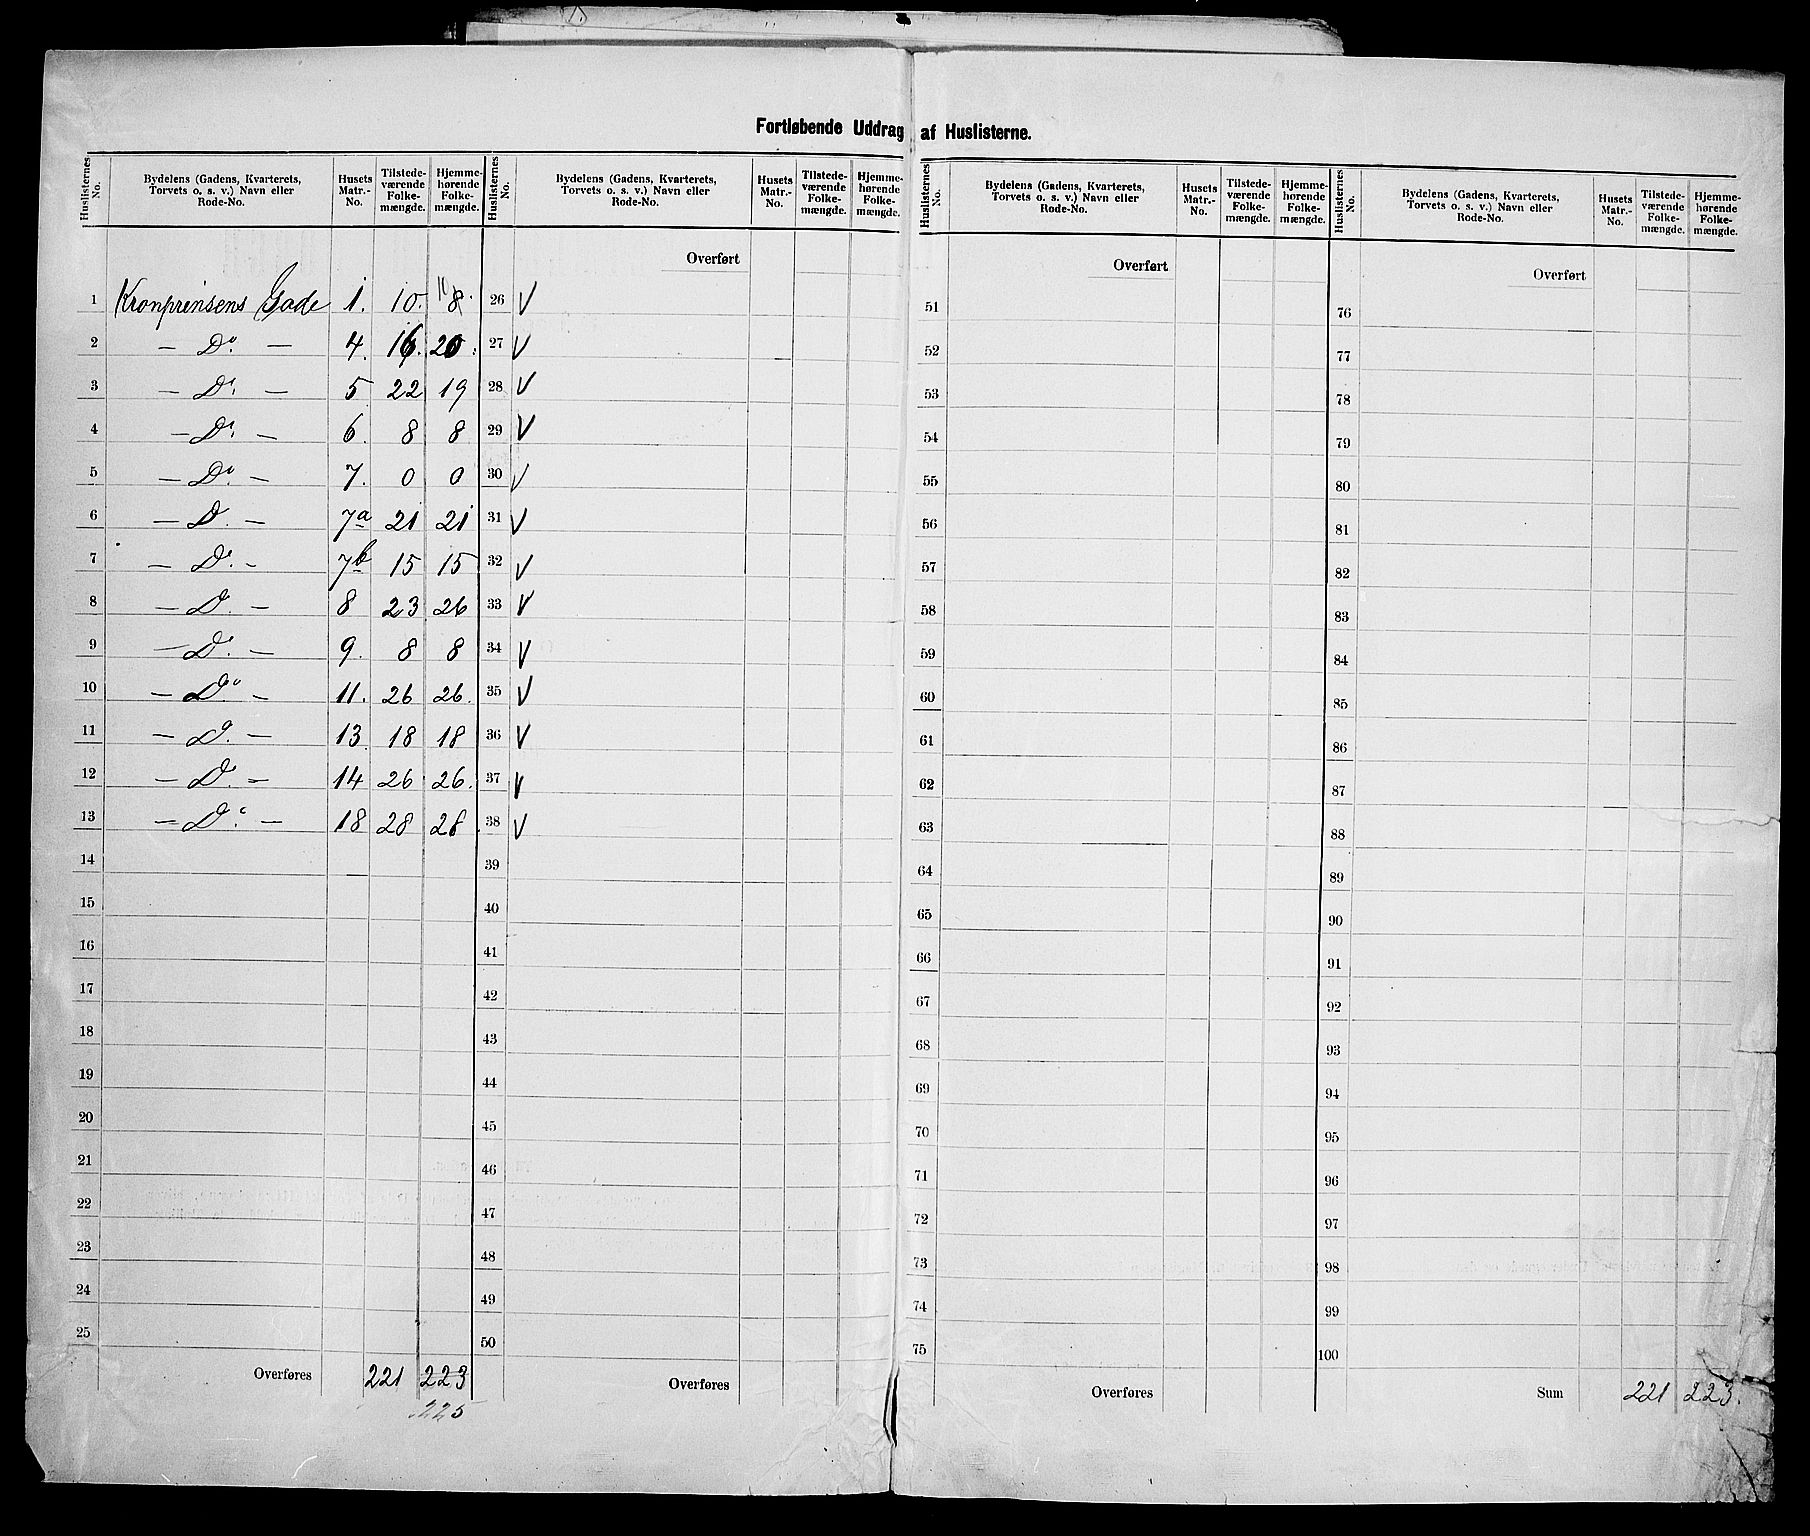 Fortløbende Uddrag af Huslisterne.
Huslisternes No. | Bydelens (Gadens, Kvarterets, Torvets o. s. v.) Navn eller Rode-No. | Husets Matr.-No. | Tilstede-værende Folke-mængde. | Hjemme-hørende Folke-mængde. | Huslisternes No. | Bydelens (Gadens, Kvarterets, Torvets o. s. v.) Navn eller Rode-No. | Husets Matr.-No. | Tilstede-værende Folke-mængde. | Hjemme-hørende Folke-mængde. | Huslisternes No. | Bydelens (Gadens, Kvarterets, Torvets o. s. v.) Navn eller Rode-No. | Husets Matr.-No. | Tilstede-værende Folke-mængde. | Hjemme-hørende Folke-mængde. | Huslisternes No. | Bydelens (Gadens, Kvarterets, Torvets o. s. v.) Navn eller Rode-No. | Husets Matr.-No. | Tilstede-værende Folke-mængde. | Hjemme-hørende Folke-mængde.
Overført Overført Overført
1 Kronprinsens Gade 1. 10. 11/8. 26 V 51 76
2 — Do. — 4. 16. 20. 27 V 52 77
3 — Do. — 5 22 19 28 V 53 78
4 — Do. — 6. 8 8 29 V 54 79
5 — Do. — 7. 0 0 30 V 55 80
6 — D. — 7a 21 21 31 V 56 81
7 — Do. — 7b 15 15 32 V 57 82
8 — D. — 8 23 26 33 V 58 83
9 — D. — 9. 8 8 34 V 59 84
10 — Do — 11. 26 26. 35 V 60 85
11 — D. — 13. 18 18 36 V 61 86
12 — D. — 14 26 26. 37 V 62 87
13 — Do. — 18 28 28. 38 V 63 88
14 39 64 89
15 40 65 90
16 41 66 91
17 42 67 92
18 43 68 93
19 44 69 94
20 45 70 95
21 46 71 96
22 47 72 97
23 48 73 98
24 49 74 99
25 50 75 100
Overføres 221 223 Overføres Overføres Sum 221 223.
225